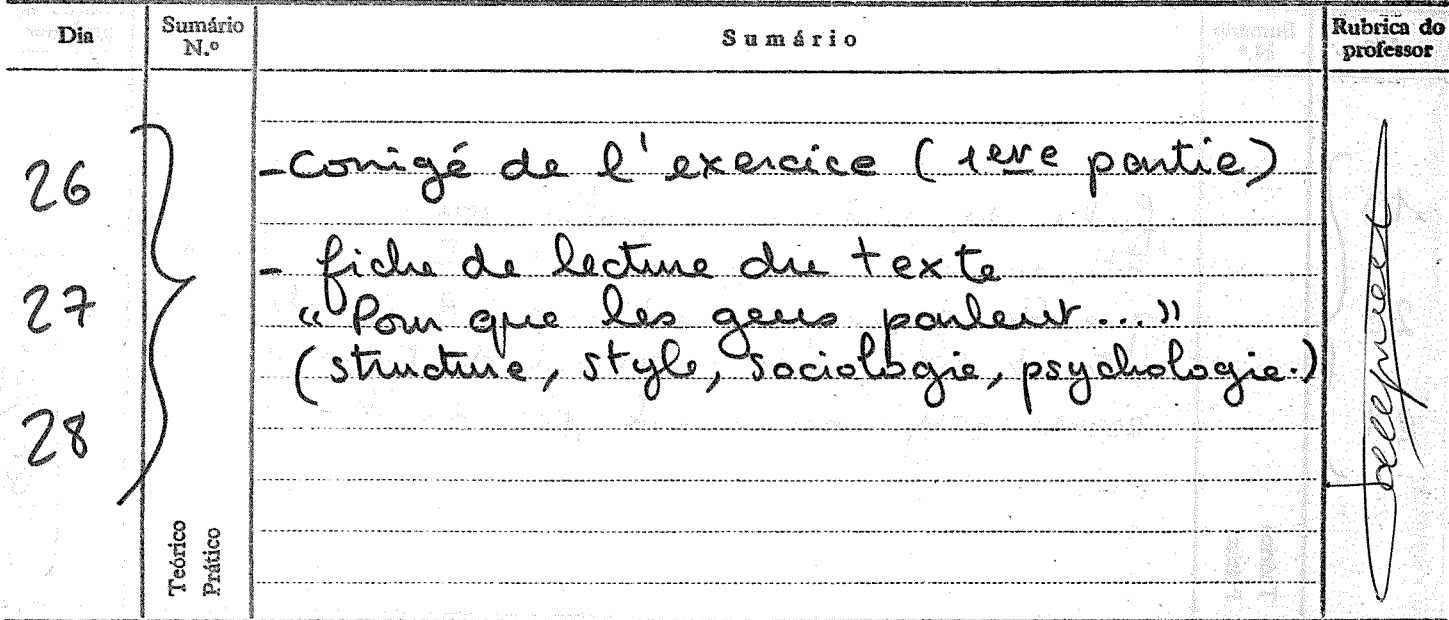 Dia
Sumário N.º
Sumário
Rubrica do professor
26
27
28
- Corrigé de l'exercice (1ere partie)
- fiche de lecture du texte
"Pour que les gens parlent..."
(structure, style, sociologie, psychologie.)
Teórico
Prático